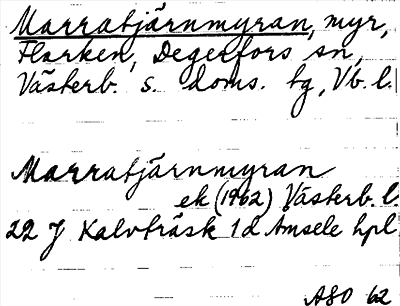 Marratjärnmyran, myr,
Flarken, Degerfors sn,
Västerb. s. doms. tg, Vb. l.
Marratjärnmyran
ek (1962) Västerb. l.
22 J Kalvträsk 1d Åmsele hpl
ASO 62